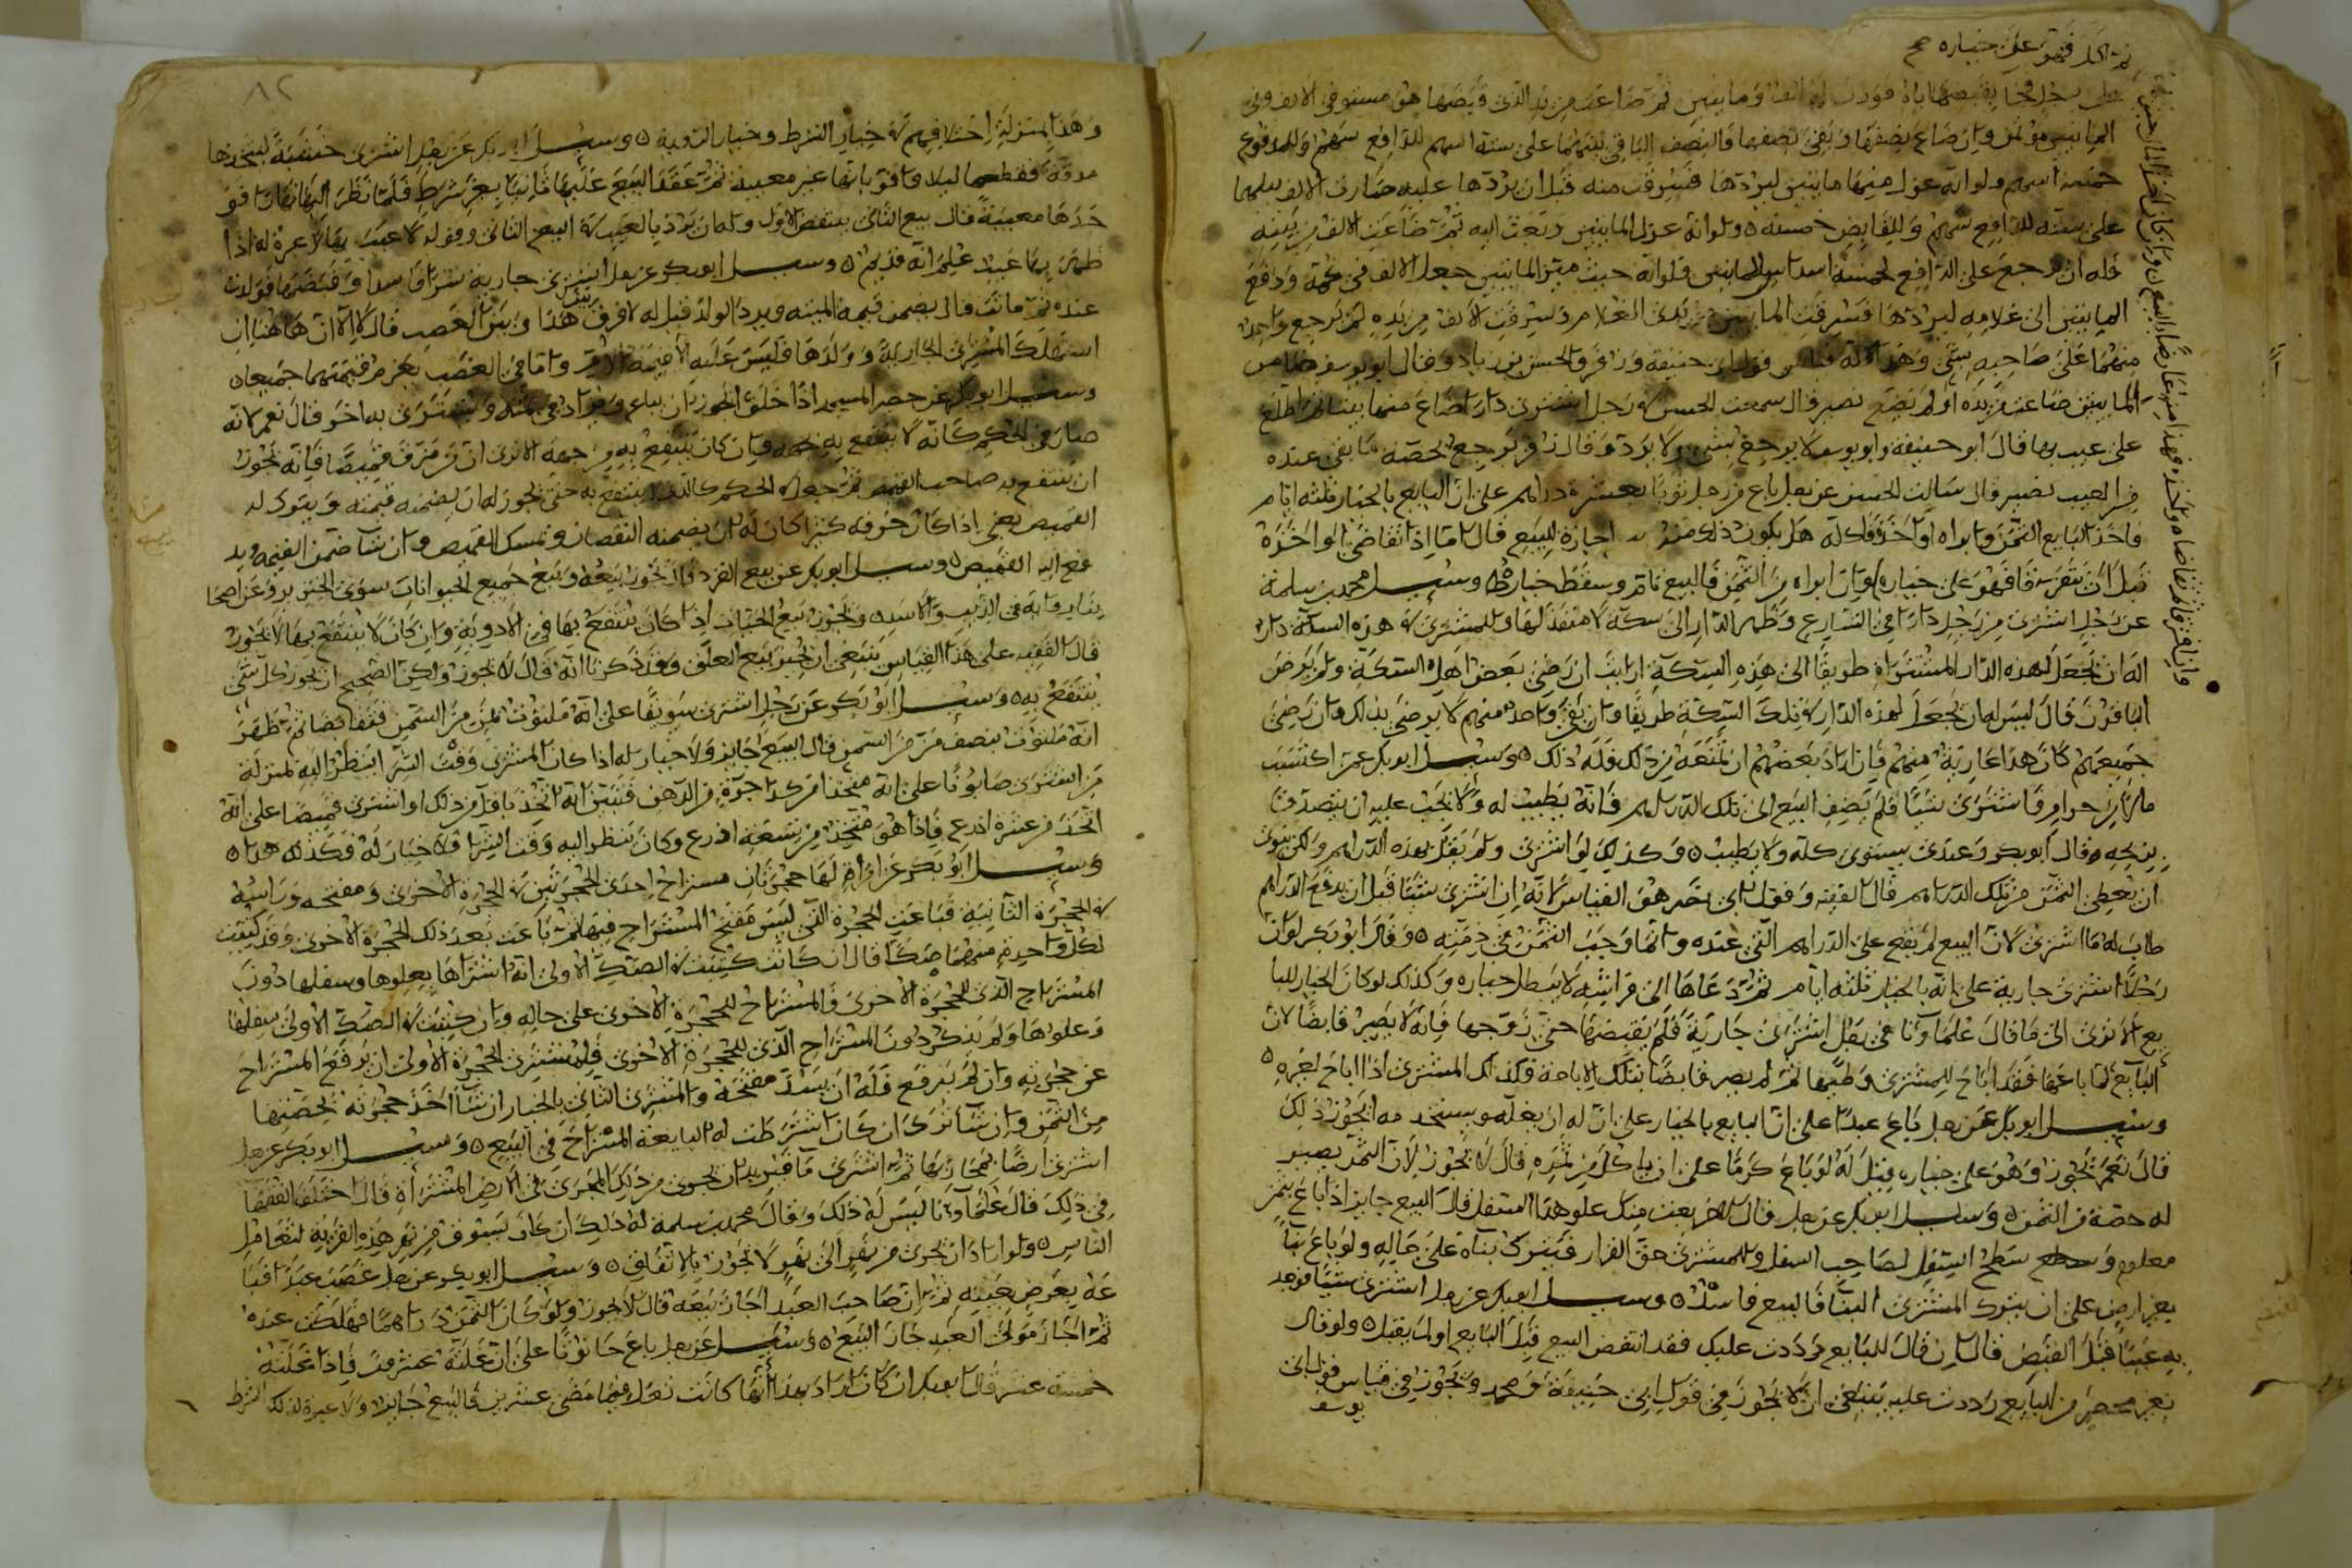 ثم اكل فهو على خياره صح
المايتين مؤتمن وان ضاع نصفها وبقي نصفها فالنصف الباقي بينهما على ستة اسهم للدافع سهم وللمدفوع
خمسة اسهم ولو انه عزل منها مايتين ليردها فسرقت منه قبل ان يردها عليه
على ستة للدافع سهم وللقابض خمسة ولو انه عزل المايتين وبعث اليه ثم ضاعت الالف من يده
فله ان يرجع على الدافع بخمسة اسداس المايتين فلو انه حيث ميز المايتين جعل الالف في كمه ودفع
المايتين الى غلامه ليردها فسرقت المايتين من يدي الغلام وسرقت الالف من يده لم يرجع واحد
منهما على صاحبه بشي وهذا كله قياس قول ابي حنيفة وزفر والحسن بن زياد وقال ابو يوسف
المايتين ضاعت من يده او لم تضع نصير قال سمعت الحسن في رجل اشترى دارا ضاع منها بيت ثم اطلع
على عيب بها قال ابو حنيفة وابو يوسف لا يرجع بشي ولا يرد وقال زفر يرجع بحصة ما بقي عنده
من العيب نصير قال سالت الحسن عن رجل باع من رجل ثوبا بعشرة دراهم على ان البايع بالخيار ثلثة ايام
فاخذ البايع الثمن وابراه او اخذ هل يكون ذلك منه اجازة للبيع قال اما اذا تقاضى او اخذه
قبل ان يتفرقا فهو على خياره وان ابراه من الثمن فالبيع تام وسقط خياره وسئل محمد بن سلمة
عن رجل اشترى من رجل دارا في الشارع وظهر الدار الى سكة لا منفذ لها وللمشتري في هذه السكة دار
اله ان يجعل لهذه الدار المشتراة طريقا الى هذه السكة ارايت ان رضي بعض اهل السكة ولم يرض
الباقون قال ليس له ان يجعل لهذه الدار في تلك السكة طريقا وان بقي واحد منهم لا يرضى بذلك وان رضي
جميعهم كان هذا عارية منهم فان اراد بعضهم ان يمنعه من ذلك فله ذلك وسئل ابو بكر عمن اكتسب
مالا من حرام فاشترى شيئا فلم يضف البيع الى تلك الدراهم فانه يطيب له ولا يجب عليه ان يتصدق
بربحه قال ابو بكر وعندي يستوي كله ولا يطيب وكذلك لو اشترى ولم يقل بهذه الدراهم ولكن ينوي
ان يعطي الثمن من تلك الدراهم قال الفقيه وقول ابي نصر هو القياس لانه ان اشترى شيئا قبل ان يدفع الدراهم
طاب له ما اشترى لان البيع لم يقع على الدراهم التي عنده وانما وجب الثمن في ذمته وقال ابو بكر لو ان
رجلا اشترى جارية على انه بالخيار ثلثة ايام ثم دعاها الى فراشه لا يبطل خياره وكذلك لو كان الخيار للبا
يع الا ترى الى ما قال علماونا في رجل اشترى جارية فلم يقبضها حتى زوجها فانه لا يصير قابضا لان
البايع لما باعها فقد اباح للمشتري وطيها ثم لم يصر قابضا بتلك الاباحة فكذلك المشتري اذا اباح لغيره
وسئل ابو بكر عن رجل باع عبدا على ان البايع بالخيار على ان له ان يغله ويستخدمه ايجوز ذلك
قال نعم يجوز وهو على خياره قيل له لو باع كرما على ان ياكل من ثمره قال لا يجوز لان الثمر يصير
له حصة من الثمن وسئل ابو بكر عن رجل قال لاخر بعت منك علو هذا المنزل قال البيع جايز اذا باع بثمن
معلوم وسطح السفل لصاحب السفل وللمشتري حق القرار فيترك بناه على حاله ولو باع بنا
بغير ارض على ان يترك المشتري البنا فالبيع فاسد وسئل ابو بكر عن رجل اشترى شيئا فوجد
به عيبا قبل القبض قال ان قال للبايع رددت عليك فقد انتقض البيع قبل البايع او لم يقبل ولو قال
بغير محضر من البايع رددت عليه ينبغي ان لا يجوز في قول ابي حنيفة ومحمد ويجوز في قياس قول ابي
يوسف
٨٢
وهذا بمنزلة اختلافهم في خيار الشرط وخيار الروية وسئل ابو بكر عن رجل اشترى خشبة ليتخذها
ثم عقدا البيع عليها ثانيا بغير شرط فلما نظر اليها
معيبة قال بيع الثاني ينقض الاول وله ان يرد بالعيب في البيع الثاني وقوله لا عيب بها لا عبرة له اذا
ظهر بها عيب علم انه قديم وسئل ابو بكر عن رجل اشترى جارية شرا فاسدا وقبضها فولدت
عنده ثم ماتت قال يضمن قيمة الميتة ويرد الولد قيل له لا فرق بين هذا وبين الغصب قال لا الا ان هاهنا ان
استهلك المشتري الجارية وولدها فليس عليه الا قيمة الام واما في الغصب يغرم قيمتهما جميعا
وسئل ابو بكر عن حصر المسجد اذا خلق ايجوز ان يباع ويزاد في ثمنه ويشترى به اخر قال نعم لانه
صار في الحكم كانه لا ينتفع به وان كان ينتفع به من جهة الا ترى ان من خرق قميصا فانه يجوز
ان ينتفع به صاحب القميص ثم جعل في الحكم كالذي لا ينتفع به حتى يجوز له ان يضمنه قيمته ويترك له
القميص يعني اذا كان خرقه كبيرا كان له ان يضمنه النقصان ويمسك القميص وان شا ضمن القيمة ويد
فع اليه القميص وسئل ابو بكر عن بيع القرد قال يجوز بيعه وبيع جميع الحيوانات سوى الخنزير
في الذيب والاسد ويجوز بيع الحيات اذا كان ينتفع بها في الادوية وان كان لا ينتفع بها لا يجوز
قال الفقيه على هذا القياس ينبغي ان يجيز بيع العلق وقد ذكرنا انه قال لا يجوز ولكن الصحيح ان يجوز كل شي
ينتفع به وسئل ابو بكر عن رجل اشترى سويقا على انه ملتوت بمن من السمن فتقابضا ثم ظهر
انه ملتوت بنصف من من السمن قال البيع جايز ولا خيار له اذا كان المشتري وقت الشرا ينظر اليه بمنزلة
من اشترى صابونا على انه متخذ من كذا جرة من الدهن فتبين انه اتخذ باقل من ذلك او اشترى قميصا على انه
اتخذ من عشرة اذرع فاذا هو متخذ من تسعة اذرع وكان ينظر اليه وقت الشرا فلا خيار له فكذلك هذا
وسئل ابو بكر عن امراة لها حجرتان مستراح احدى الحجرتين في الحجرة الاخرى ومفتحه وراسه
في الحجرة الثانية فباعت الحجرة التي ليس مفتح المستراح فيها ثم باعت بعد ذلك الحجرة الاخرى وقد كتبت
لكل واحد منهما صكا قال ان كانت كتبت في الصك الاولى انه اشتراها بعلوها وسفلها دون
المستراح الذي للحجرة الاخرى فالمستراح للحجرة الاخرى على حاله وان كتبت في الصك الاولى بسفلها
وعلوها ولم يذكر دون المستراح الذي للحجرة الاخرى فلمشتري الحجرة الاولى ان يرفع المستراح
عن حجرته وان لم يرفع فله ان يسد مفتحه والمشتري الثاني بالخيار ان شا اخذ حجرته بحصتها
من الثمن وان شا ترك ان كان اشترطت له البايعة المستراح في البيع وسئل ابو بكر عن رجل
اشترى ارضا بمجاريها ثم اشترى ما قبله يريد ان يجري من ذلك المجرى في الارض المشتراة قال اختلف الفقها
في ذلك قال علماونا ليس له ذلك وقال محمد بن سلمة له ذلك ان كان يستوفي من نهر هذه القرية لتعامل
الناس ولو اراد ان يجري من نهر الى نهر لا يجوز بالاتفاق وسئل ابو بكر عن رجل غصب عبدا فبا
عه بعرض بعينه ثم ان صاحب العبد اجاز بيعه قال لا يجوز ولو كان الثمن دراهما فهلكت عنده
ثم اجاز مولى العبد جاز البيع وسئل عن رجل باع حانوتا على ان غلته عشرون فاذا غلته
خمسة عشر قال ابو بكر ان كان اراد بهذا انها كانت تغل فيما مضى عشرين فالبيع جايز ولا عبرة لذلك الشرط